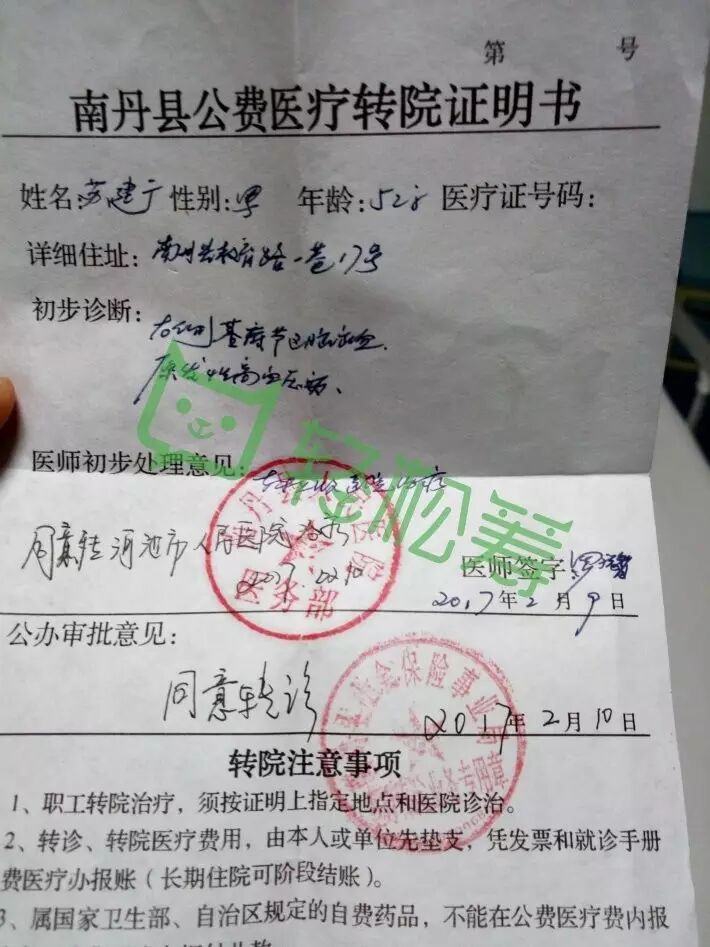 第 号
南丹县公费医疗转院证明书
姓名:苏建广 性别:男 年龄:52岁 医疗证号码:
详细住址:南丹县教育路一巷17号
初步诊断:
右侧基底节区脑出血.
原发性高血压病、
轻松筹
医师初步处理意见:转上级医院治疗
同意转河池市人民医院治疗
2017.02.10
医务部
医师签字:
2017年2月9日
公办审批意见:
同意转诊
2017年2月10日
保险事业
转院注意事项
1、职工转院治疗,须按证明上指定地点和医院诊治。
2、转诊、转院医疗费用,由本人或单位先垫支,凭发票和就诊手册
费医疗办报账(长期住院可阶段结账)。
3、属国家卫生部、自治区规定的自费药品,不能在公费医疗费内报